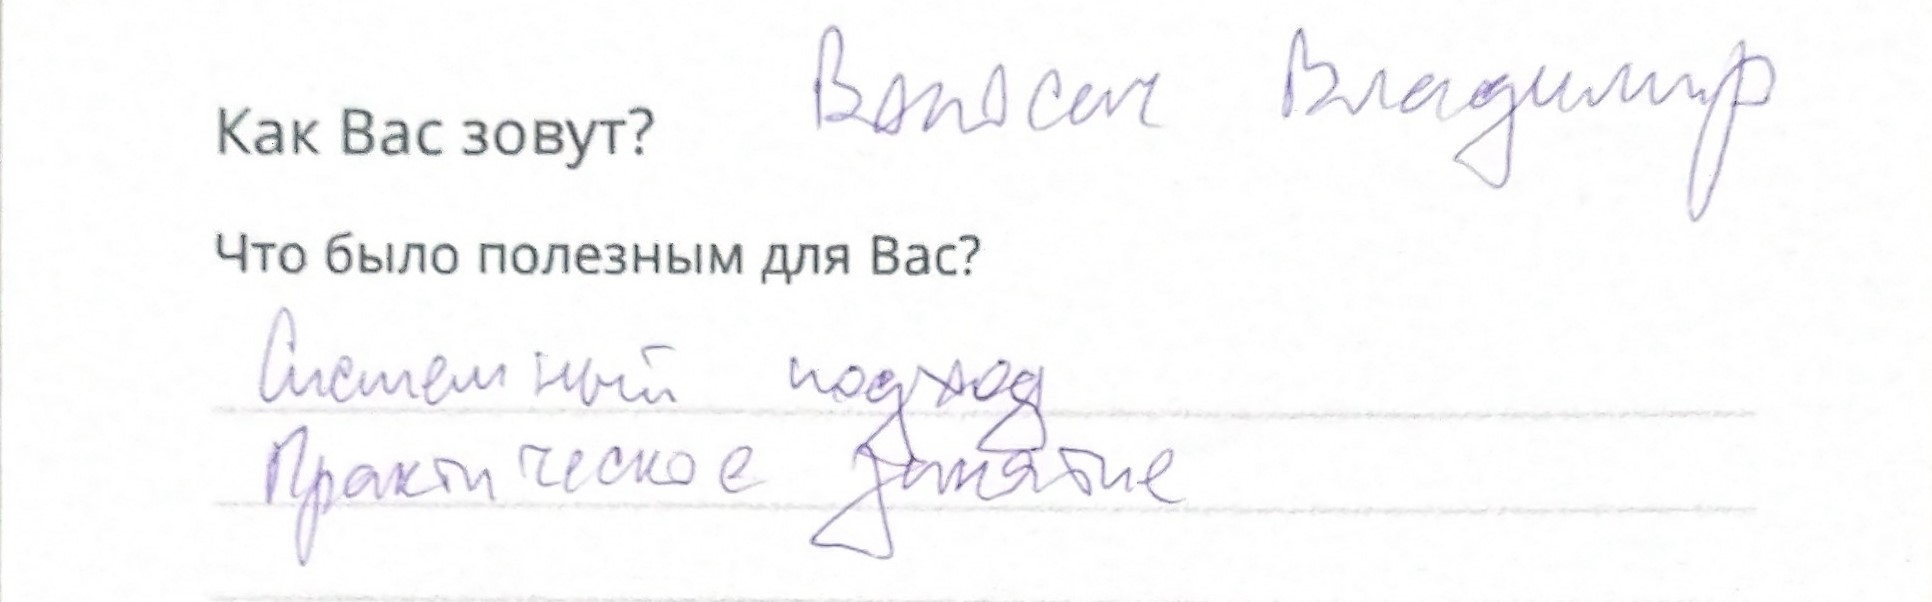 Как Вас зовут? Владимир
Что было полезным для Вас?
Системный подход
Практическое занятие